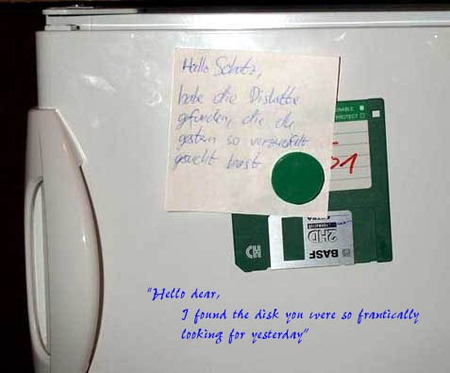 Hallo Schatz,
habe die Diskette
gefunden, die du
gestern so verzweifelt
gesucht hast.
ENABLE
PROTECT
BASF
2HD
EXTRA
HD
"Hello dear,
I found the disk you were so frantically
looking for yesterday"